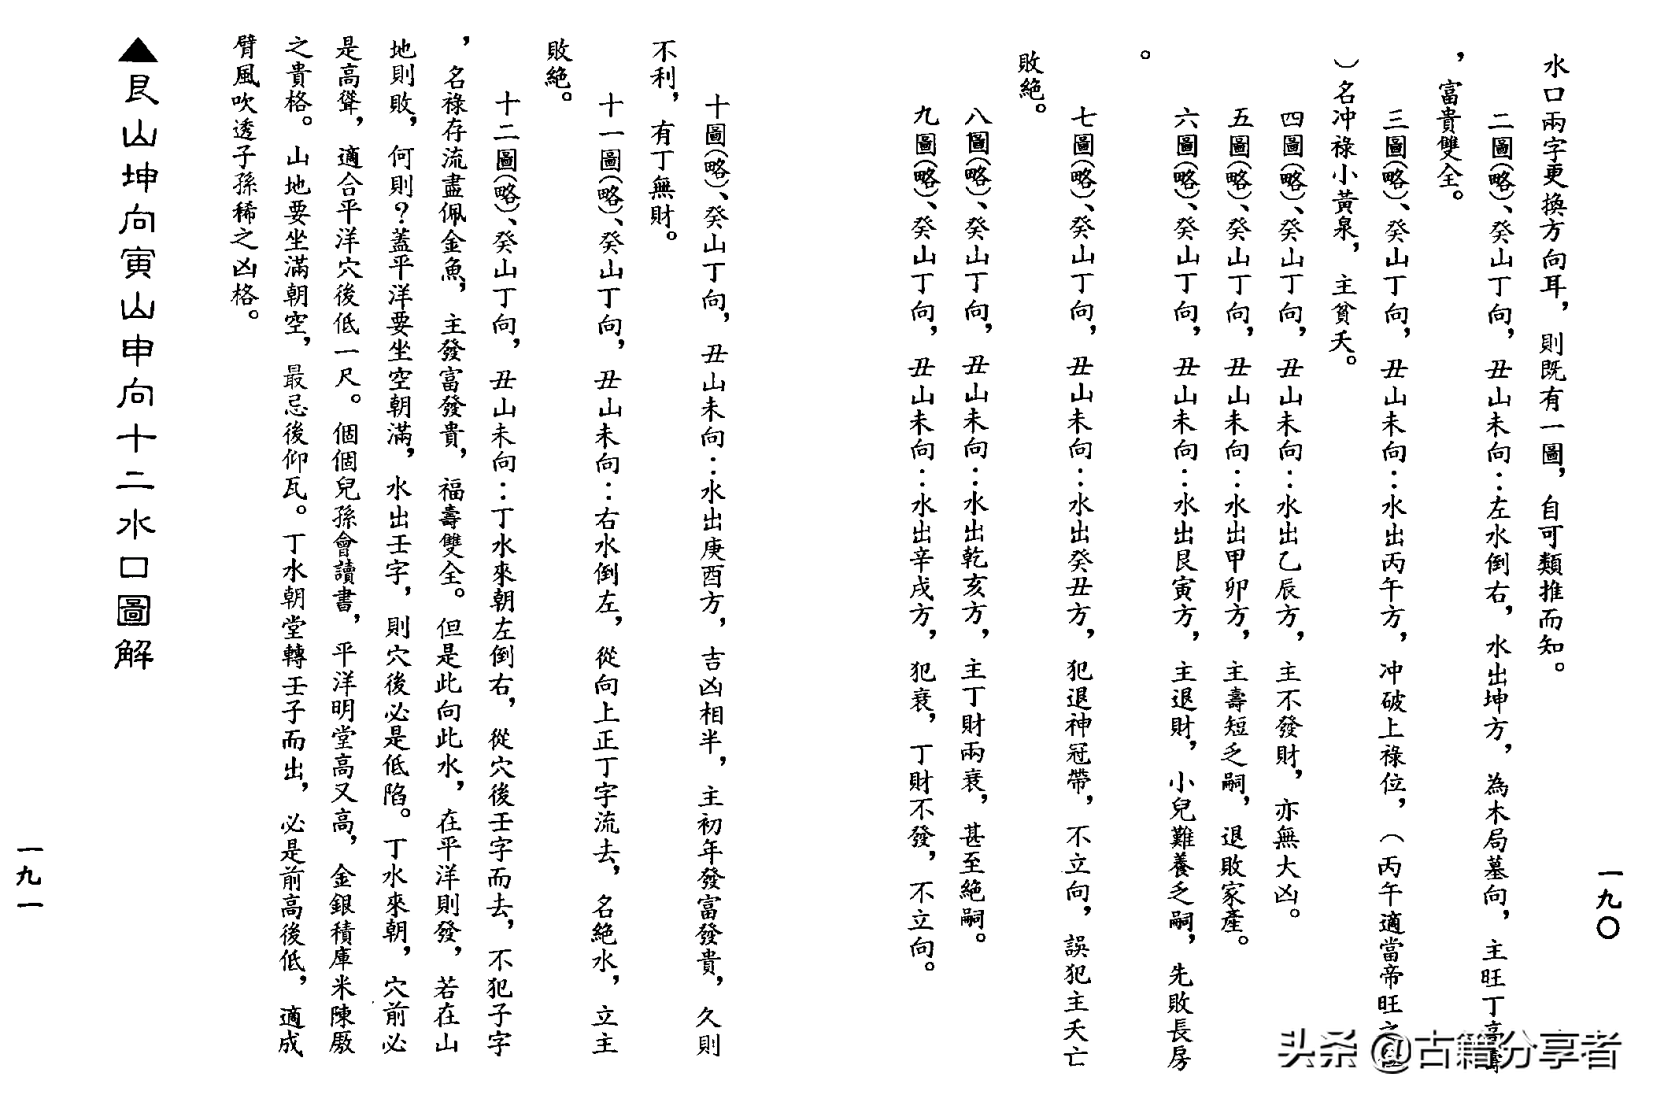 一九〇
水口兩字更換方向耳，則既有一圖，自可類推而知。
二圖(略)、癸山丁向，丑山未向：左水倒右，水出坤方，為木局墓向，主旺丁高壽
，富貴雙全。
三圖(略)、癸山丁向，丑山未向：水出丙午方，冲破上祿位，（丙午適當帝旺之
）名冲祿小黃泉，主貧夭。
四圖(略)、癸山丁向，丑山未向：水出乙辰方，主不發財，亦無大凶。
五圖(略)、癸山丁向，丑山未向：水出甲卯方，主壽短乏嗣，退敗家產。
六圖(略)、癸山丁向，丑山未向：水出艮寅方，主退財，小兒難養乏嗣，先敗長房
。
七圖(略)、癸山丁向，丑山未向：水出癸丑方，犯退神冠帶，不立向，誤犯主夭亡
敗絕。
八圖(略)、癸山丁向，丑山未向：水出乾亥方，主丁財兩衰，甚至絕嗣。
九圖(略)、癸山丁向，丑山未向：水出辛戌方，犯衰，丁財不發，不立向。
十圖(略)、癸山丁向，丑山未向：水出庚酉方，吉凶相半，主初年發富發貴，久則
不利，有丁無財。
十一圖(略)、癸山丁向，丑山未向：右水倒左，從向上正丁字流去，名絕水，立主
敗絕。
十二圖(略)、癸山丁向，丑山未向：丁水來朝左倒右，從穴後壬字而去，不犯子字
，名祿存流盡佩金魚，主發富發貴，福壽雙全。但是此向此水，在平洋則發，若在山
地則敗，何則？蓋平洋要坐空朝滿，水出壬字，則穴後必是低陷。丁水來朝，穴前必
是高聳，適合平洋穴後低一尺。個個兒孫會讀書，平洋明堂高又高，金銀積庫米陳廒
之貴格。山地要坐滿朝空，最忌後仰瓦。丁水朝堂轉壬子而出，必是前高後低，適成
臂風吹透子孫稀之凶格。
▲艮山坤向寅山申向十二水口圖解
一九一
头条 @古籍分享者